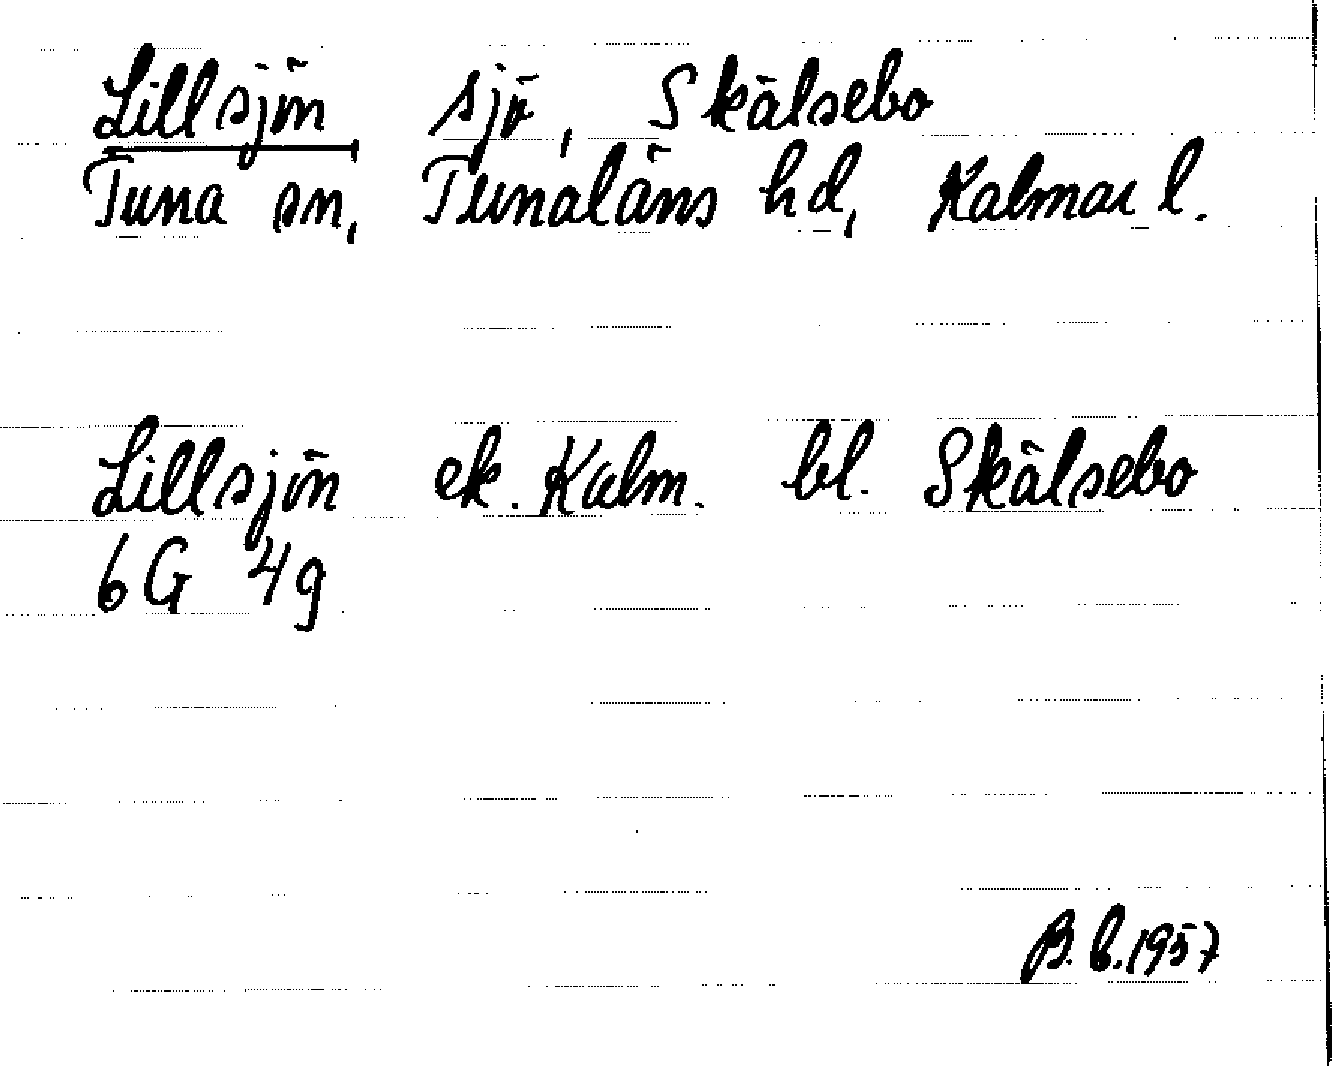 Lillsjön, sjö, Skälsebo
Tuna sn, Tunaläns hd, Kalmar l.
Lillsjön ek. Kalm. bl. Skälsebo
6G 4g
B. b. 1957